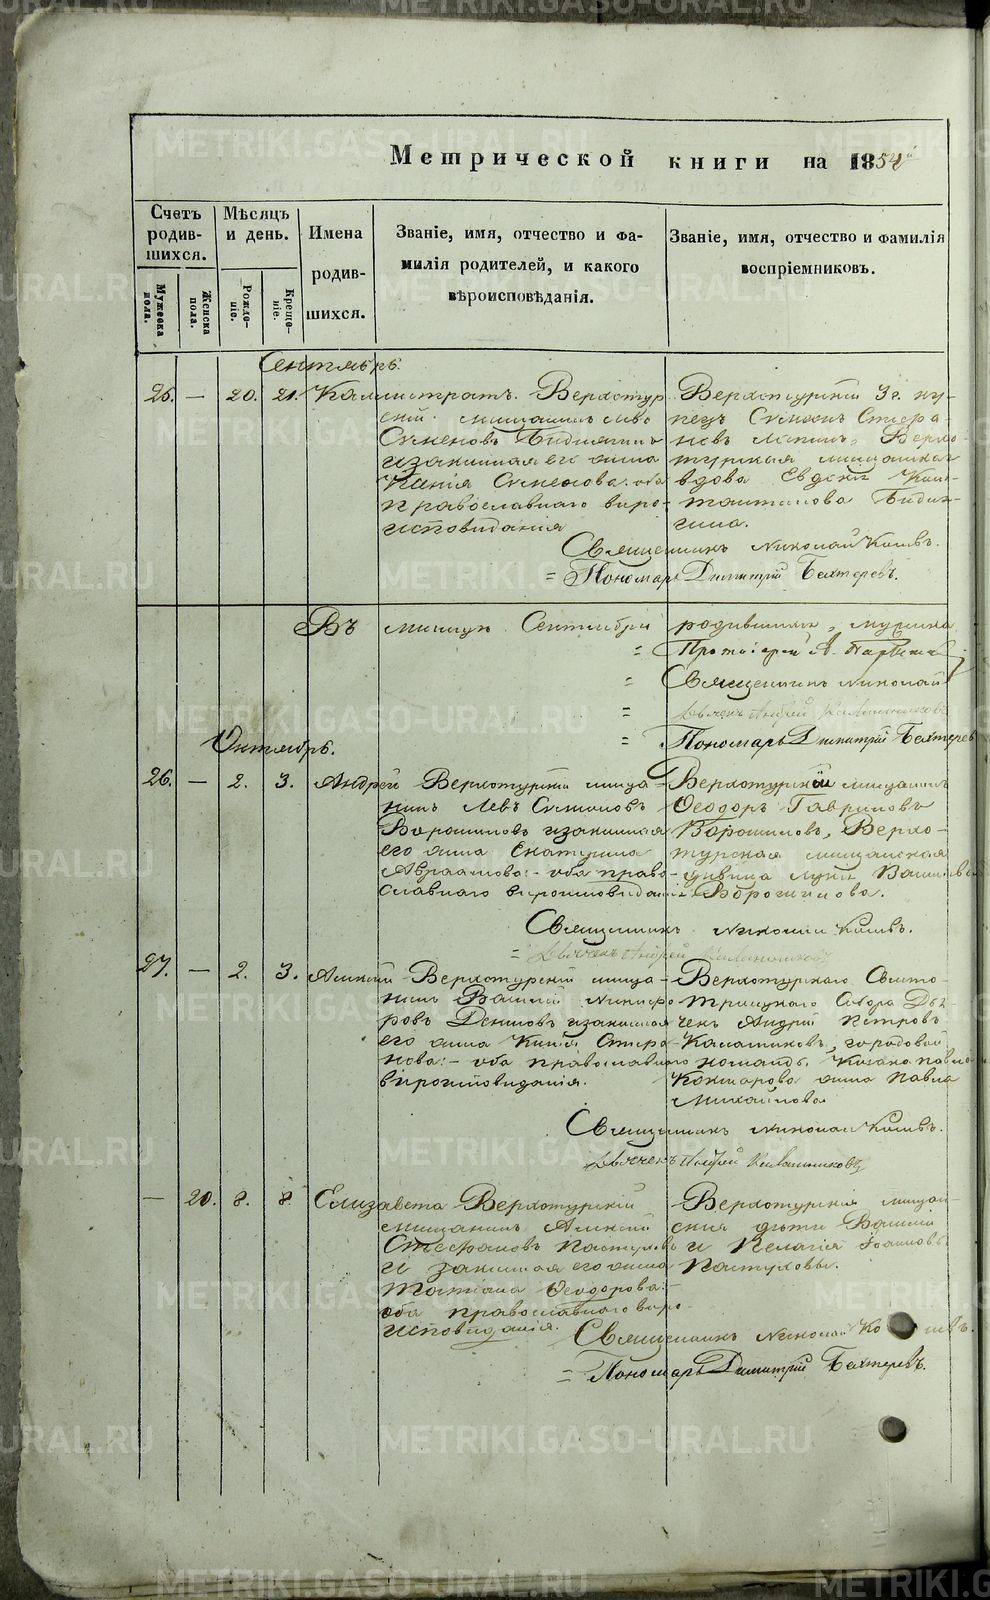 Метрической книги на 1854й
Счетъ родив-шихся.
Мѣсяцъ и день.
Имена родив-шихся.
Званіе, имя, отчество и фа-
милія родителей, и какого
вѣроисповѣданія.
Званіе, имя, отчество и фамилія
воспріемниковъ.
Мужеска пола.
Женска пола.
Рожде-ніе.
Креще-ніе.
Сентябрь.
25. — 20. 21. Каллистратъ. Верхотур-
скій мещанинъ
Семеновъ
и законная его жена
Семенова: оба
православнаго веро-
исповеданія
Верхотурскій 3 г. ку-
пецъ Стефа-
новъ Верхо-
турская мещанка
вдова Евдокія Кон-
стантинова
Священникъ Николай
= Пономарь Димитрій Бехтеревъ.
Въ месяце Сентябре родившихся, мужеска
= Протоіерей А.
= Священникъ Николай
= Дьячекъ Андрей Калашниковъ
= Пономарь Димитрій Бехтерев
Октябрь.
26. — 2. 3. Андрей Верхотурскій меща-
нинъ Левъ
Ворошиловъ и законная
его жена Екатерина
Авраамова: – оба право-
славнаго вероисповеданія
Верхотурскій мещанинъ
Ѳеодоръ Гавриловъ
Ворошиловъ, Верхо-
турская мещанская
девица
Ворошилова.
Священникъ Николай
= Дьячекъ Андрей Калашниковъ
27. — 2. 3. Алексій Верхотурскій меща-
нинъ Василій Никифо-
ровъ Денисовъ и законная
его жена Ксенія Стефа-
нова: – оба православнаго
вероисповеданія.
Верхотурскаго Свято-
троицкаго Собора Дья-
чекъ Андрей Петровъ
Калашниковъ, городовой
команды, Козака
Кокшарова жена Павла
Михайлова
Священникъ Николай
Дьячекъ Андрей Калашниковъ
— 20. 8. 8. Елизавета Верхотурскій
мещанинъ Алексій
Стефановъ Пастуховъ
и законная его жена
Татіана Ѳеодорова: –
оба православнаго веро-
исповеданія.
Верхотурскія мещан-
скія дети Василій
и Пелагія Іоанновы
Пастуховы.
Священникъ Николай
= Пономарь Димитрій Бехтеревъ.
METRIKI.GASO-URAL.RU